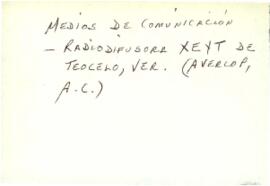 MEDIOS DE COMUNICACIÓN
- RADIODIFUSORA XEYT DE
TEOCELO, VER. (AVERCOP,
A.C.)